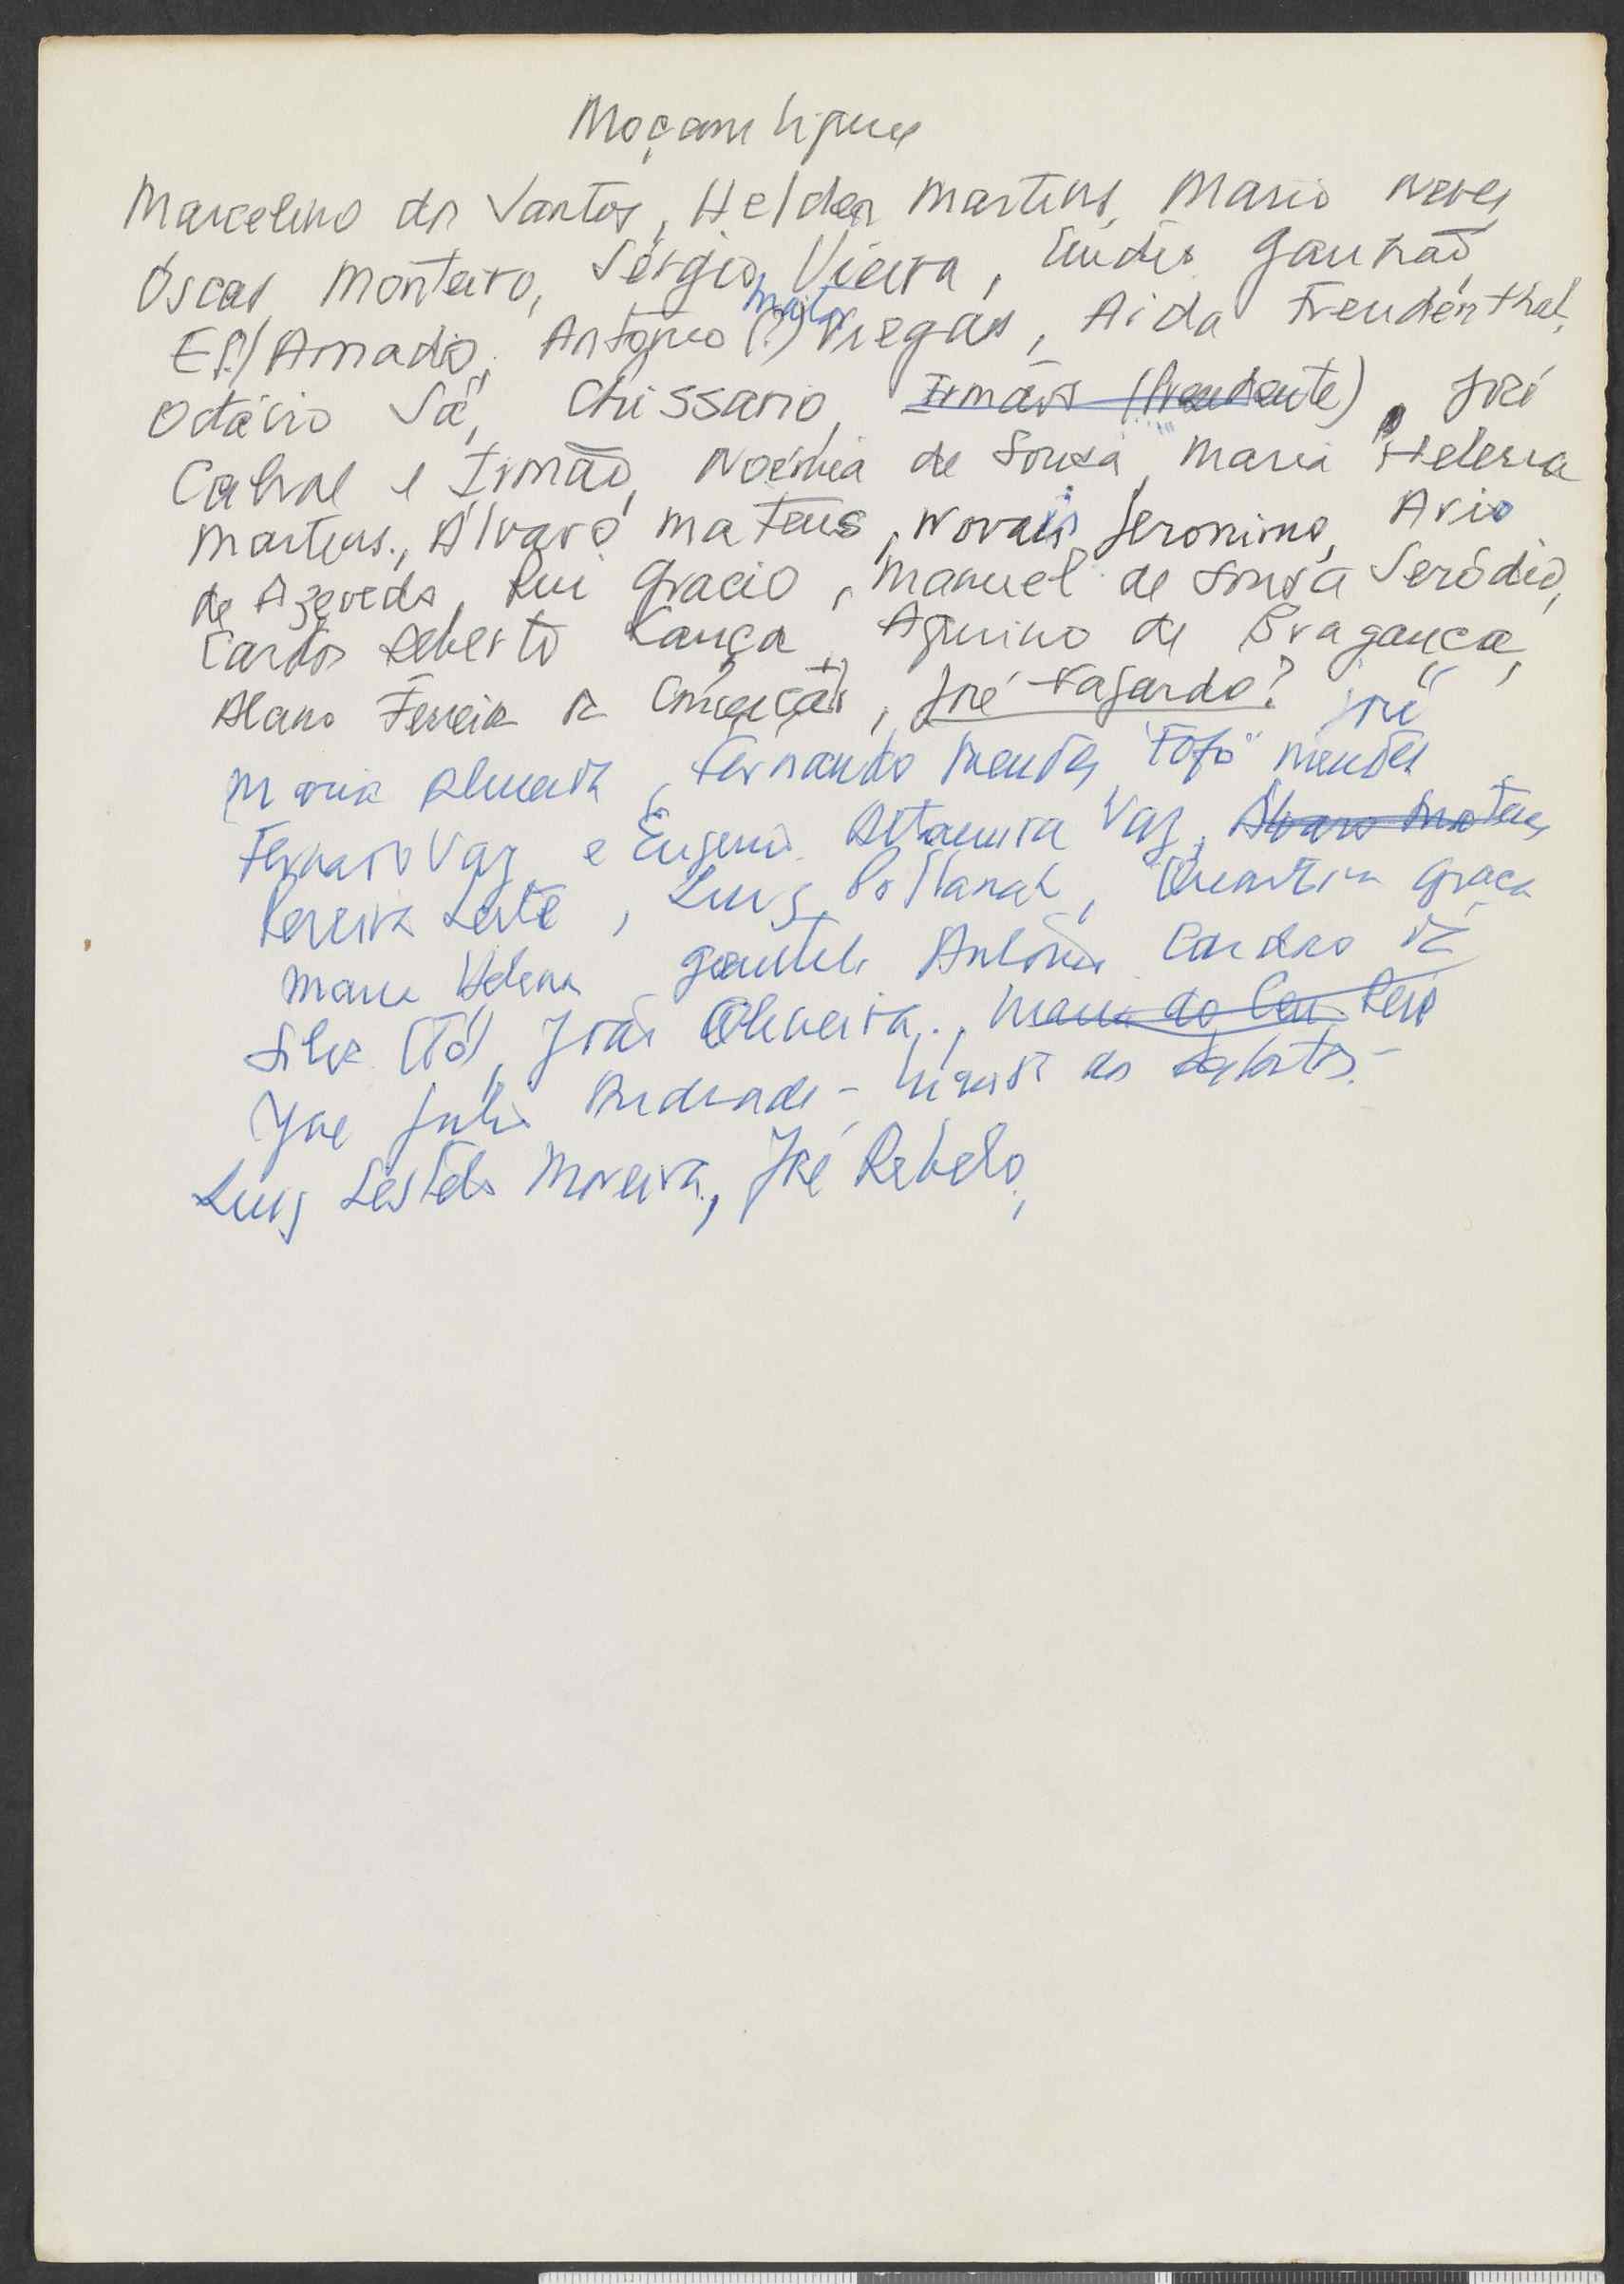 Moçambique
Marcelino dos Santos, Helder Martins, Mario Neves,
Óscar Monteiro, Sérgio Vieira, Eudes Gaurão,
Amadio, António (?) Viegas, Aida Freudenthal,
Octávio Sá, Chissano, Irmãos (Presidente), José
Cabral e Irmão, Noémia de Sousa, Maria Helena
Martins, Álvaro Mateus, Novais Jeronimo, Ario
de Azevedo, Rui Gracio, Manuel de Sousa Seródio,
Carlos Lança, Aquino de Bragança,
Ferreira da Conceição, José Fajardo? José
Maria Almeida, Fernando Mendes, "Fófó" Mendes
Fernando Vaz e Eugenio Altamira Vaz, Álvaro Mateus
Pereira Leite, Luis Polanah, Graça
Maria Helena António Cardoso da
Silva (Tó), João Oliveira, Maria do Céu Reis
José Julio Andrade
Luis Moreira, José Rebelo,